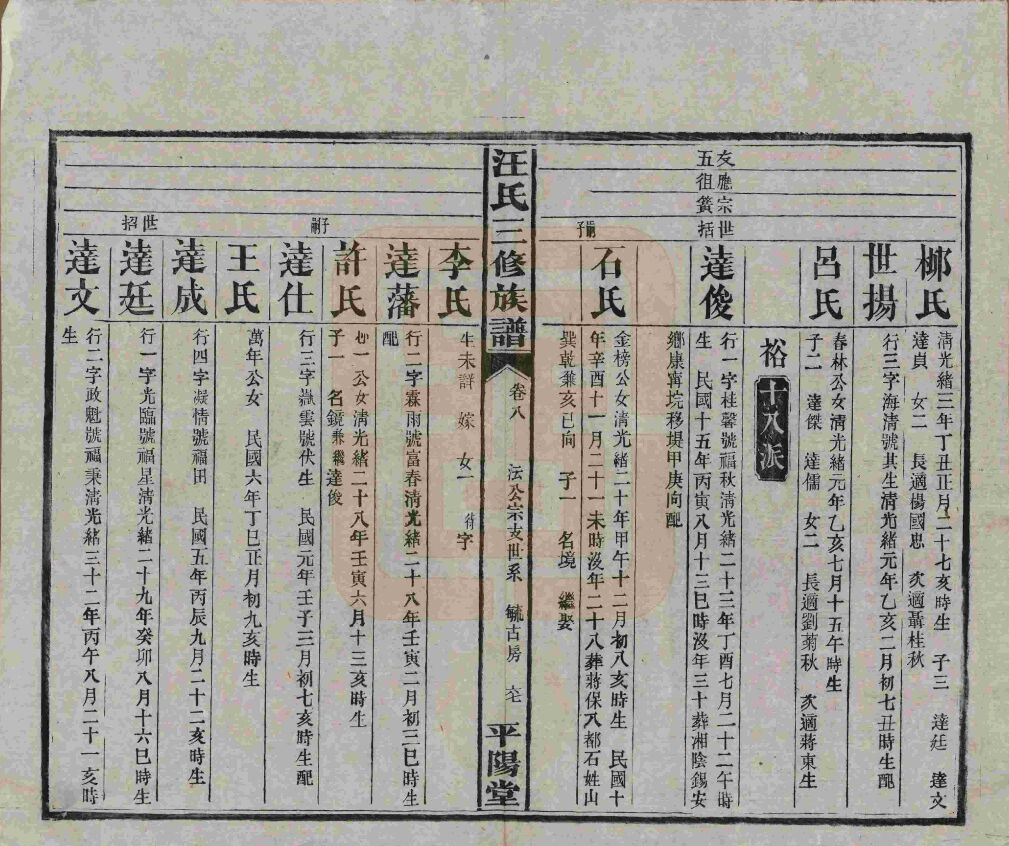 柳氏
清光緒三年丁丑正月二十七亥時生 子三 達廷 達文
達貞 女二 長適楊國忠 次適聶桂秋
世揚
行三字海清號其生清光緒元年乙亥二月初七丑時生配
呂氏
春林公女清光緒元年乙亥七月十五午時生
子二 達傑 達儒 女二 長適劉菊秋 次適蔣東生
裕十八派
友應宗世
五徂簧括
達俊
行一字桂馨號福秋清光緒二十三年丁酉七月二十二午時
生 民國十五年丙寅八月十三巳時沒年三十葬湘陰錫安
鄉康甯垸移堤甲庚向配
嗣子
石氏
金榜公女清光緒二十年甲午十二月初八亥時生 民國十
年辛酉十一月二十一未時沒年二十八葬蔣保八都石姓山
巽乾兼亥巳向 子一 名境 繼娶
汪氏三修族譜
卷八
法公宗支世系 毓古房 六七
平陽堂
李氏
生未詳 嫁 女一 待字
達藩
行二字霖雨號富春清光緒二十八年壬寅二月初三巳時生
配
子嗣
許氏
一公女清光緒二十八年壬寅六月十三亥時生
子一 名鏡兼繼達俊
達仕
行三字嶽雲號伏生 民國元年壬子三月初七亥時生配
王氏
萬年公女 民國六年丁巳正月初九亥時生
世招
達成
行四字凝情號福田 民國五年丙辰九月二十二亥時生
達廷
行一字光臨號福星清光緒二十九年癸卯八月十六巳時生
達文
行二字政魁號福秉清光緒三十二年丙午八月二十一亥時
生